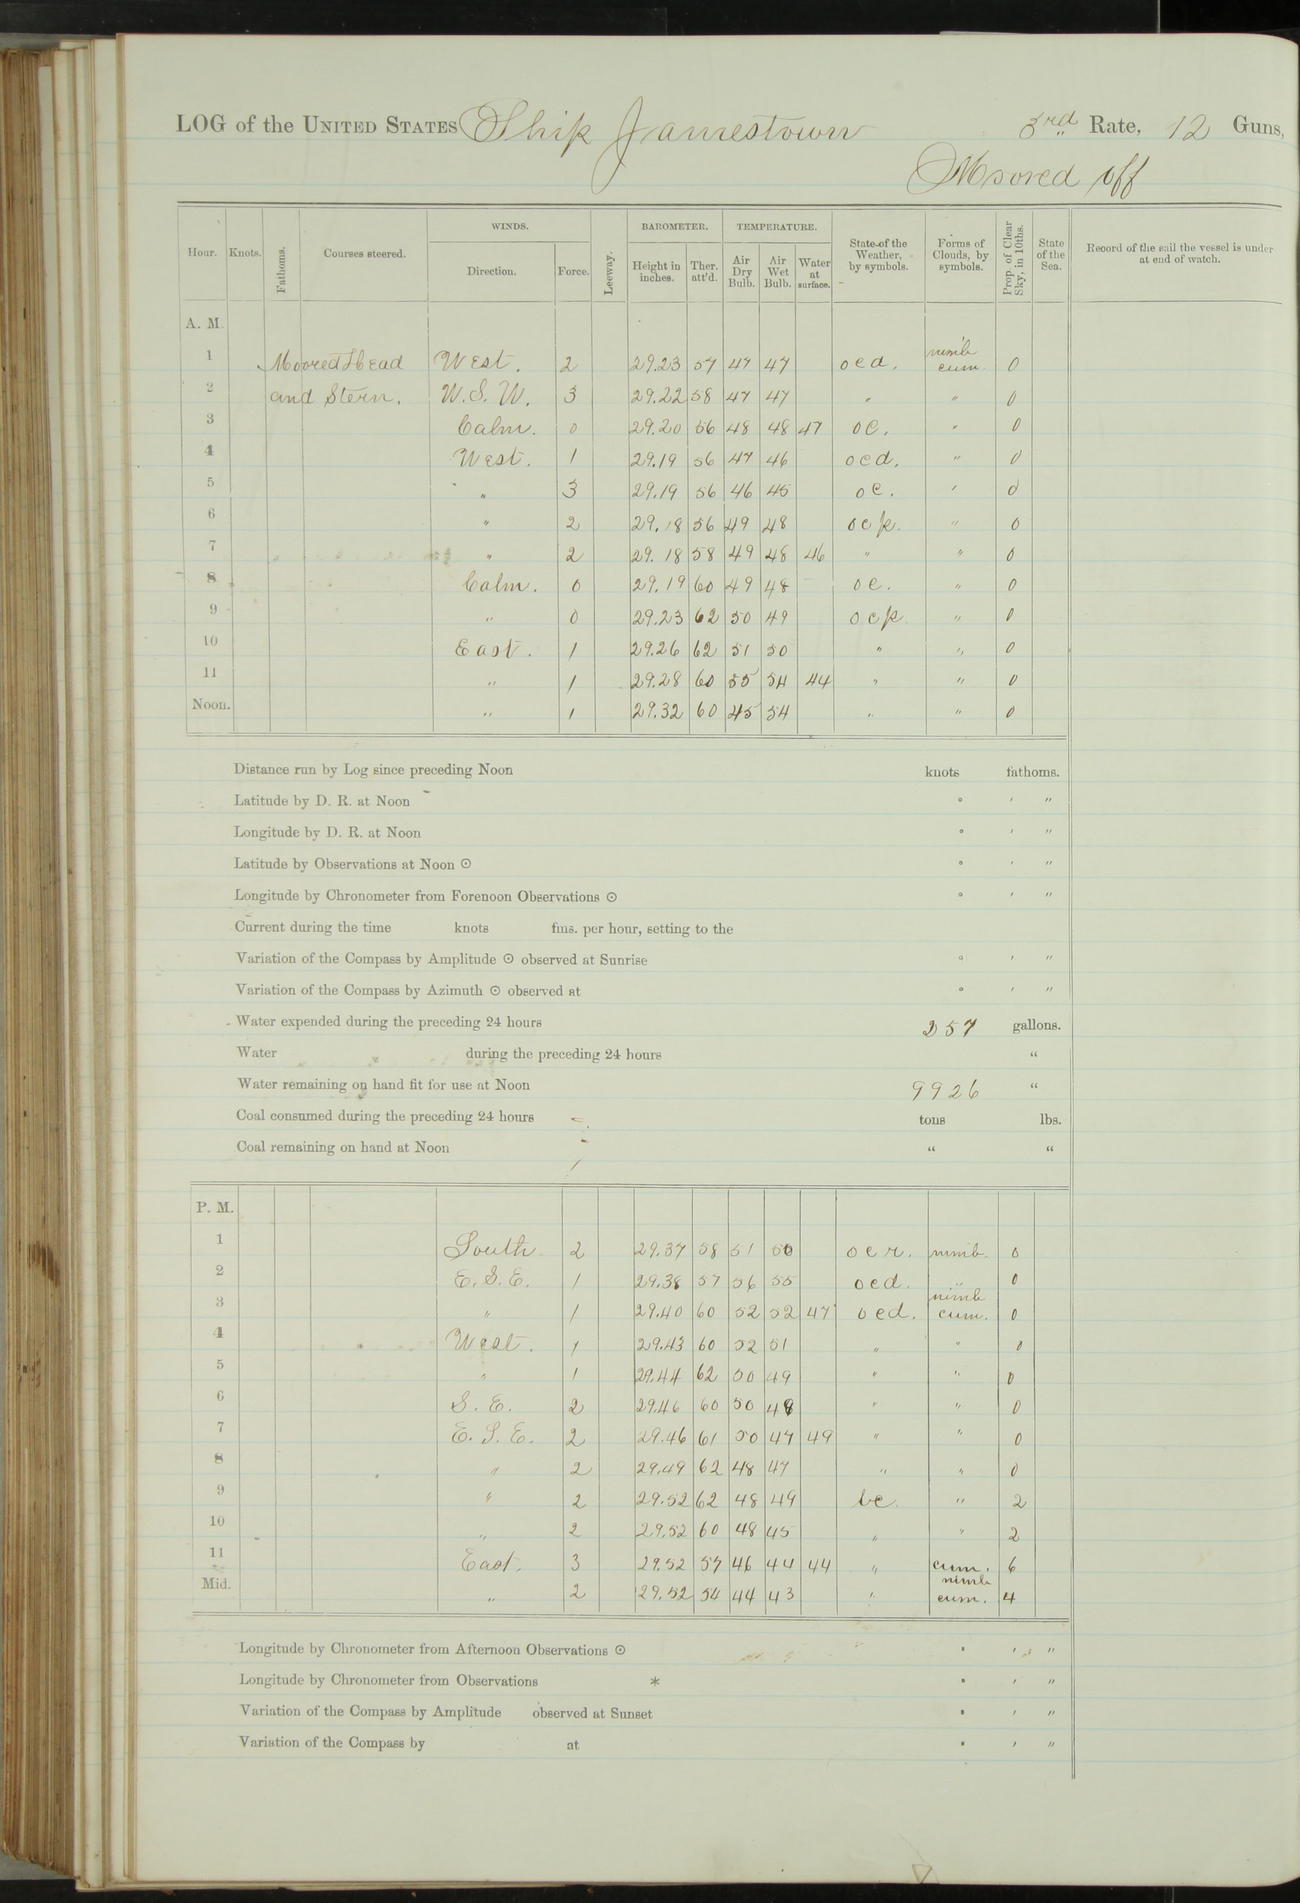 LOG of the UNITED STATES Ship Jamestown 3rd Rate, 12 Guns,
Moored off
Hour. Knots. Fathoms. Courses steered. WINDS. Direction. Force. Leeway. BAROMETER. Height in inches. Ther. att'd. TEMPERATURE. Air Dry Bulb. Air Wet Bulb. Water at surface. State of the Weather, by symbols. Forms of Clouds, by symbols. Prop. of Clear Sky, in 10ths. State of the Sea. Record of the sail the vessel is under at end of watch.
A. M.
1 Moored Head West. 2 29.23 57 47 47 ocd. nimb cum. 0
2 and Stern. W.S.W. 3 29.22 58 47 47 " " 0
3 Calm. 0 29.20 56 48 48 47 oc. " 0
4 West. 1 29.19 56 47 46 ocd. " 0
5 " 3 29.19 56 46 45 oc. " 0
6 " 2 29.18 56 49 48 ocp. " 0
7 " 2 29.18 58 49 48 46 " " 0
8 Calm. 0 29.19 60 49 48 oc. " 0
9 " 0 29.23 62 50 49 ocp. " 0
10 East. 1 29.26 62 51 50 " " 0
11 " 1 29.28 60 55 54 44 " " 0
Noon. " 1 29.32 60 45 54 " " 0
Distance run by Log since preceding Noon knots fathoms.
Latitude by D. R. at Noon ° ′ ″
Longitude by D. R. at Noon ° ′ ″
Latitude by Observations at Noon ⊙ ° ′ ″
Longitude by Chronometer from Forenoon Observations ⊙ ° ′ ″
Current during the time knots fms. per hour, setting to the
Variation of the Compass by Amplitude ⊙ observed at Sunrise ° ′ ″
Variation of the Compass by Azimuth ⊙ observed at ° ′ ″
Water expended during the preceding 24 hours 257 gallons.
Water during the preceding 24 hours "
Water remaining on hand fit for use at Noon 9926 "
Coal consumed during the preceding 24 hours tons lbs.
Coal remaining on hand at Noon " "
P. M.
1 South. 2 29.37 58 51 50 ocr. nimb. 0
2 E.S.E. 1 29.38 57 56 55 ocd. " 0
3 " 1 29.40 60 52 52 47 ocd. nimb cum. 0
4 West. 1 29.43 60 52 51 " " 0
5 " 1 29.44 62 50 49 " " 0
6 S.E. 2 29.46 60 50 48 " " 0
7 E.S.E. 2 29.46 61 50 47 49 " " 0
8 " 2 29.49 62 48 47 " " 0
9 " 2 29.52 62 48 49 bc. " 2
10 " 2 29.52 60 48 45 " " 2
11 East. 3 29.52 57 46 44 44 " cum. 6
Mid. " 2 29.52 54 44 43 " nimb cum. 4
Longitude by Chronometer from Afternoon Observations ⊙ ° ′ ″
Longitude by Chronometer from Observations * ° ′ ″
Variation of the Compass by Amplitude observed at Sunset ° ′ ″
Variation of the Compass by at ° ′ ″